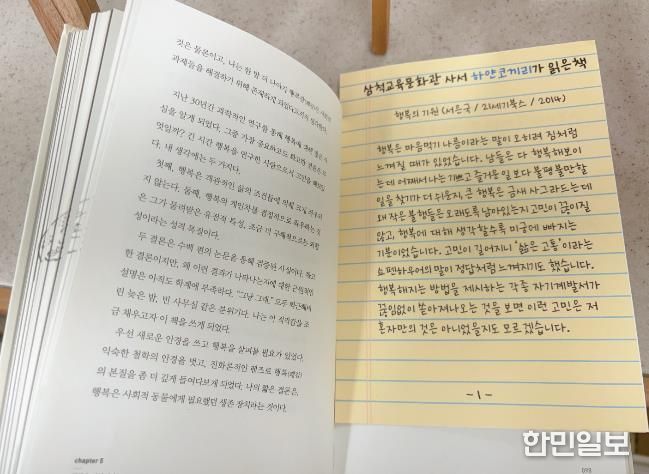 것은 물론이고, 나는 한 발 더 나아가
과제들을 해결하기 위해
지난 30년간 과학적인 연구를 통해 행복에 대한 많은 사
실을 알게 되었다. 그중 가장 중요하고도 확고한 결론은 무
엇일까? 긴 시간 행복을 연구한 사람으로서 고민을 해봤
다. 내 생각에는 두 가지다.
첫째, 행복은 객관적인 삶의 조건들에 의해 크게 좌우되
지 않는다. 둘째, 행복의 개인차를 결정적으로 좌우하는 것
은 그가 물려받은 유전적 특성, 조금 더 구체적으로는 외향
성이라는 성격 특질이다.
두 결론은 수백 편의 논문을 통해 검증된 사실이다. 확고
한 결론이지만, 왜 이런 결과가 나타나는지에 대한 근원적인
설명은 아직도 학계에 부족하다. "그냥 그래." 모두 퇴근해버
린 늦은 밤, 빈 사무실 같은 분위기다. 나는 이 적막감을 조
금 채우고자 이 책을 쓰게 되었다.
우선 새로운 안경을 쓰고 행복을 살펴볼 필요가 있었다.
익숙한 철학의 안경을 벗고, 진화론적인 렌즈로 행복(쾌감)
의 본질을 좀 더 깊게 들여다보게 되었다. 나의 짧은 결론은,
행복은 사회적 동물에게 필요했던 생존 장치라는 것이다.
chapter 5
삼척교육문화관 사서 하얀코끼리가 읽은책
행복의 기원 (서은국 / 21세기북스 / 2014)
행복은 마음먹기 나름이라는 말이 오히려 짐처럼
느껴질 때가 있었습니다. 남들은 다 행복해보이
는데 어째서 나는 기쁘고 즐거운 일보다 불평불만할
일을 찾기가 더 쉬운지, 큰 행복은 금새 사그라드는데
왜 작은 불행들은 오래도록 남아있는지 고민이 끊이질
않고, 행복에 대해 생각할수록 미궁에 빠지는
기분이었습니다. 고민이 길어지니 '삶은 고통'이라는
쇼펜하우어의 말이 정답처럼 느껴지기도 했습니다.
행복해지는 방법을 제시하는 각종 자기계발서가
끊임없이 쏟아져나오는 것을 보면 이런 고민은 저
혼자만의 것은 아니었을지도 모르겠습니다.
-1-
093
한민일보